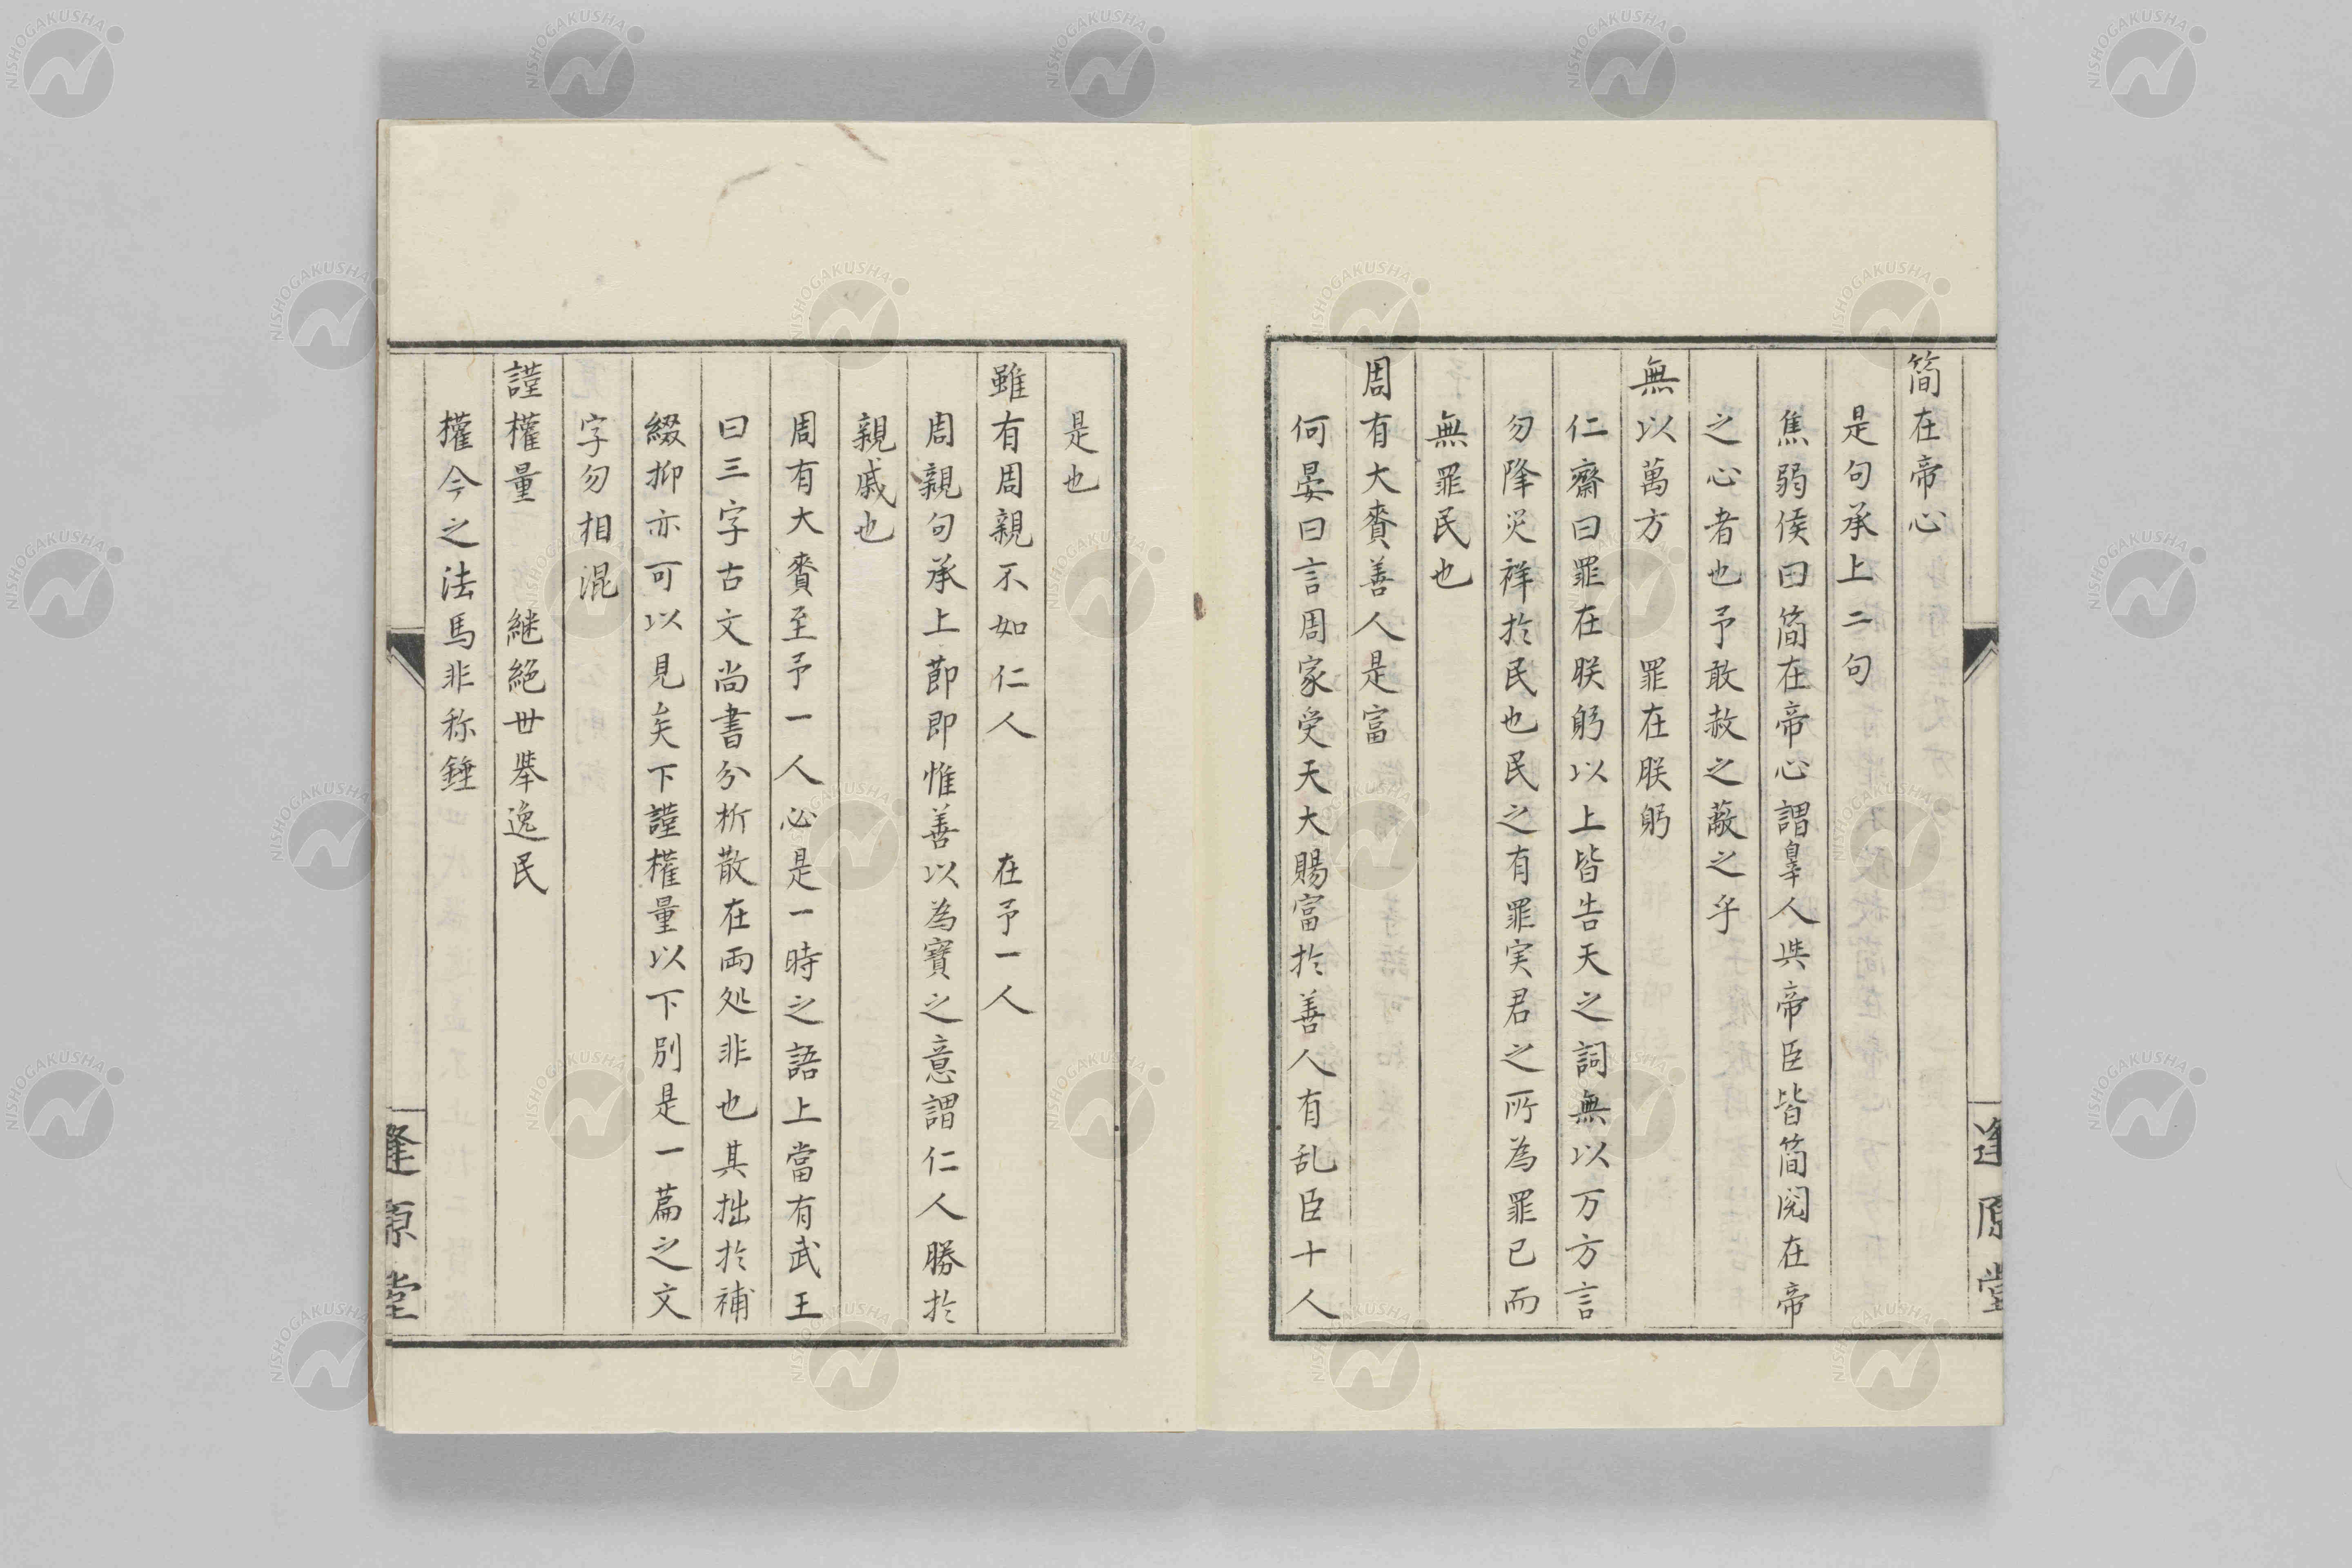 簡在帝心
是句承上二句
焦弱侯曰簡在帝心謂辠人與帝臣皆簡閱在帝
之心者也予敢赦之蔽之乎
無以萬方　罪在朕躬
仁齋曰罪在朕躬以上皆告天之詞無以万方言
勿降災祥於民也民之有罪実君之所為罪已而
無罪民也
周有大賚善人是富
何晏曰言周家受天大賜富於善人有乱臣十人
逢原堂
是也
雖有周親不如仁人　在予一人
周親句承上節即惟善以為寶之意謂仁人勝於
親戚也
周有大賚至予一人必是一時之語上當有武王
曰三字古文尚書分析散在両処非也其拙於補
綴抑亦可以見矣下謹權量以下別是一篇之文
字勿相混
謹權量　継絶世挙逸民
權今之法馬非称錘
逢原堂
NISHOGAKUSHA